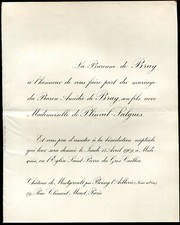 La Baronne de Bray
a l'honneur de vous faire part du mariage
du Baron Amédée de Bray, son fils, avec
Mademoiselle de Plinval Salgues.
Et vous prie d'assister à la bénédiction nuptiale
qui leur sera donnée le Jeudi 15 Avril 1909, à Midi
précis, en l'Église Saint Pierre du Gros Caillou.
Château de Montgeroult par Boissy l'Aillerie (Seine et Oise)
Rue Clément Marot, Paris